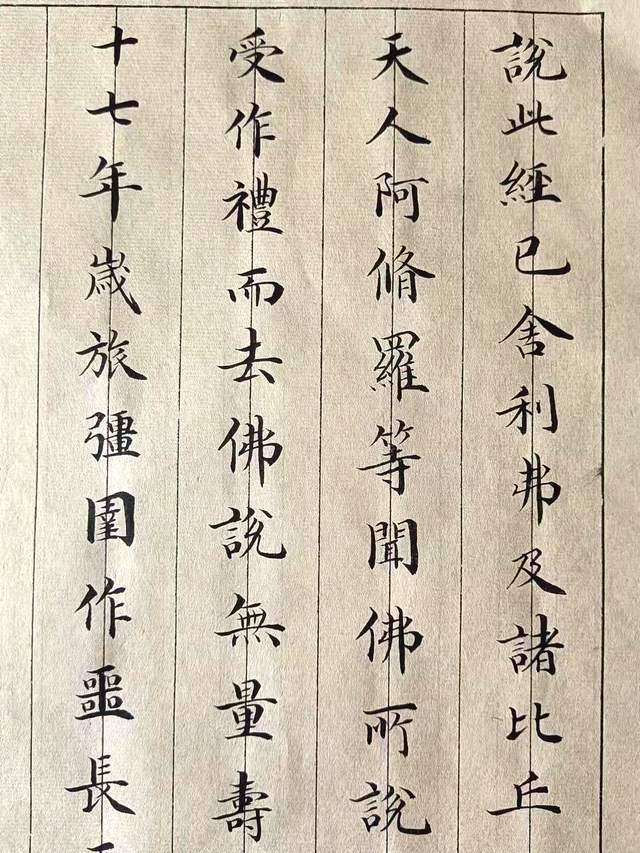 說此經已舍利弗及諸比丘
天人阿脩羅等聞佛所說
受作禮而去佛說無量壽
十七年歲旅彊圉作噩長